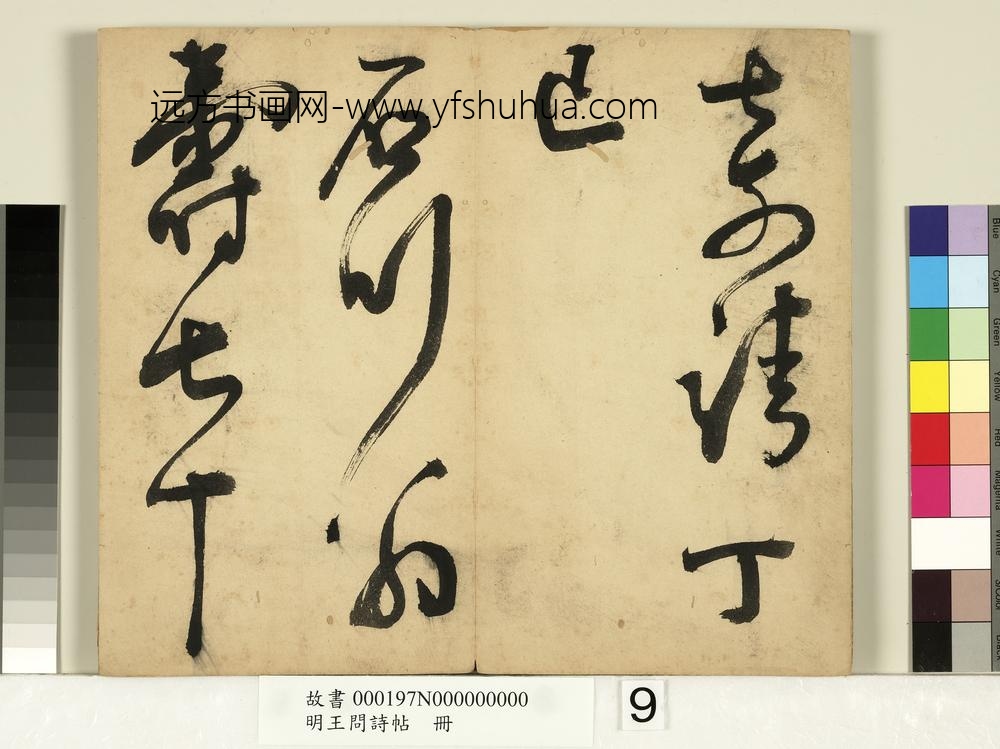 嘉靖丁
巳
石川翁
壽七十
远方书画网-www.yfshuhua.com
故書 000197N000000000
明王問詩帖 冊
9
Blue
Cyan
Green
Yellow
Red
Magenta
White
3/Color
Black